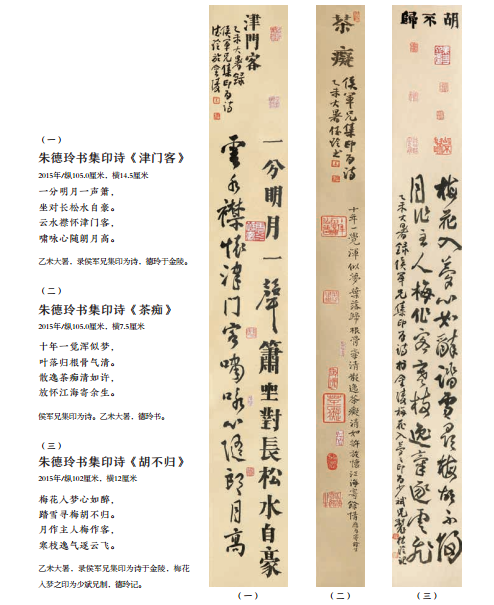 （一）
朱德玲书集印诗《津门客》
2015年/纵105.0厘米，横14.5厘米
一分明月一声箫，
坐对长松水自豪。
云水襟怀津门客，
啸咏心随朗月高。
乙未大暑，录侯军兄集印为诗，德玲于金陵。
（二）
朱德玲书集印诗《茶痴》
2015年/纵105.0厘米，横7.5厘米
十年一觉浑似梦，
叶落归根骨气清。
散逸茶痴清如许，
放怀江海寄余生。
侯军兄集印为诗。乙未大暑，德玲书。
（三）
朱德玲书集印诗《胡不归》
2015年/纵102厘米，横12厘米
梅花入梦心如醉，
踏雪寻梅胡不归。
月作主人梅作客，
寒枝逸气逐云飞。
乙未大暑，录侯军兄集印为诗于金陵，梅花
入梦之印为少斌兄制，德玲记。
津門客
侯軍兄集印為詩
乙未大暑錄
德玲於金陵
一分明月一聲簫坐對長松水自豪
雲水襟懷津門客嘯咏心隨朗月高
（一）
茶癡
侯軍兄集印為詩
乙未大暑德玲書
十年一覺渾似夢葉落歸根骨氣清散逸茶癡清如許放懷江海寄餘
（二）
胡不歸
梅花入夢心如醉踏雪尋梅胡不歸
月作主人梅作客寒枝逸氣逐雲飛
乙未大暑錄侯軍兄集印為詩於金陵梅花入夢之印為少斌兄製德玲記
（三）